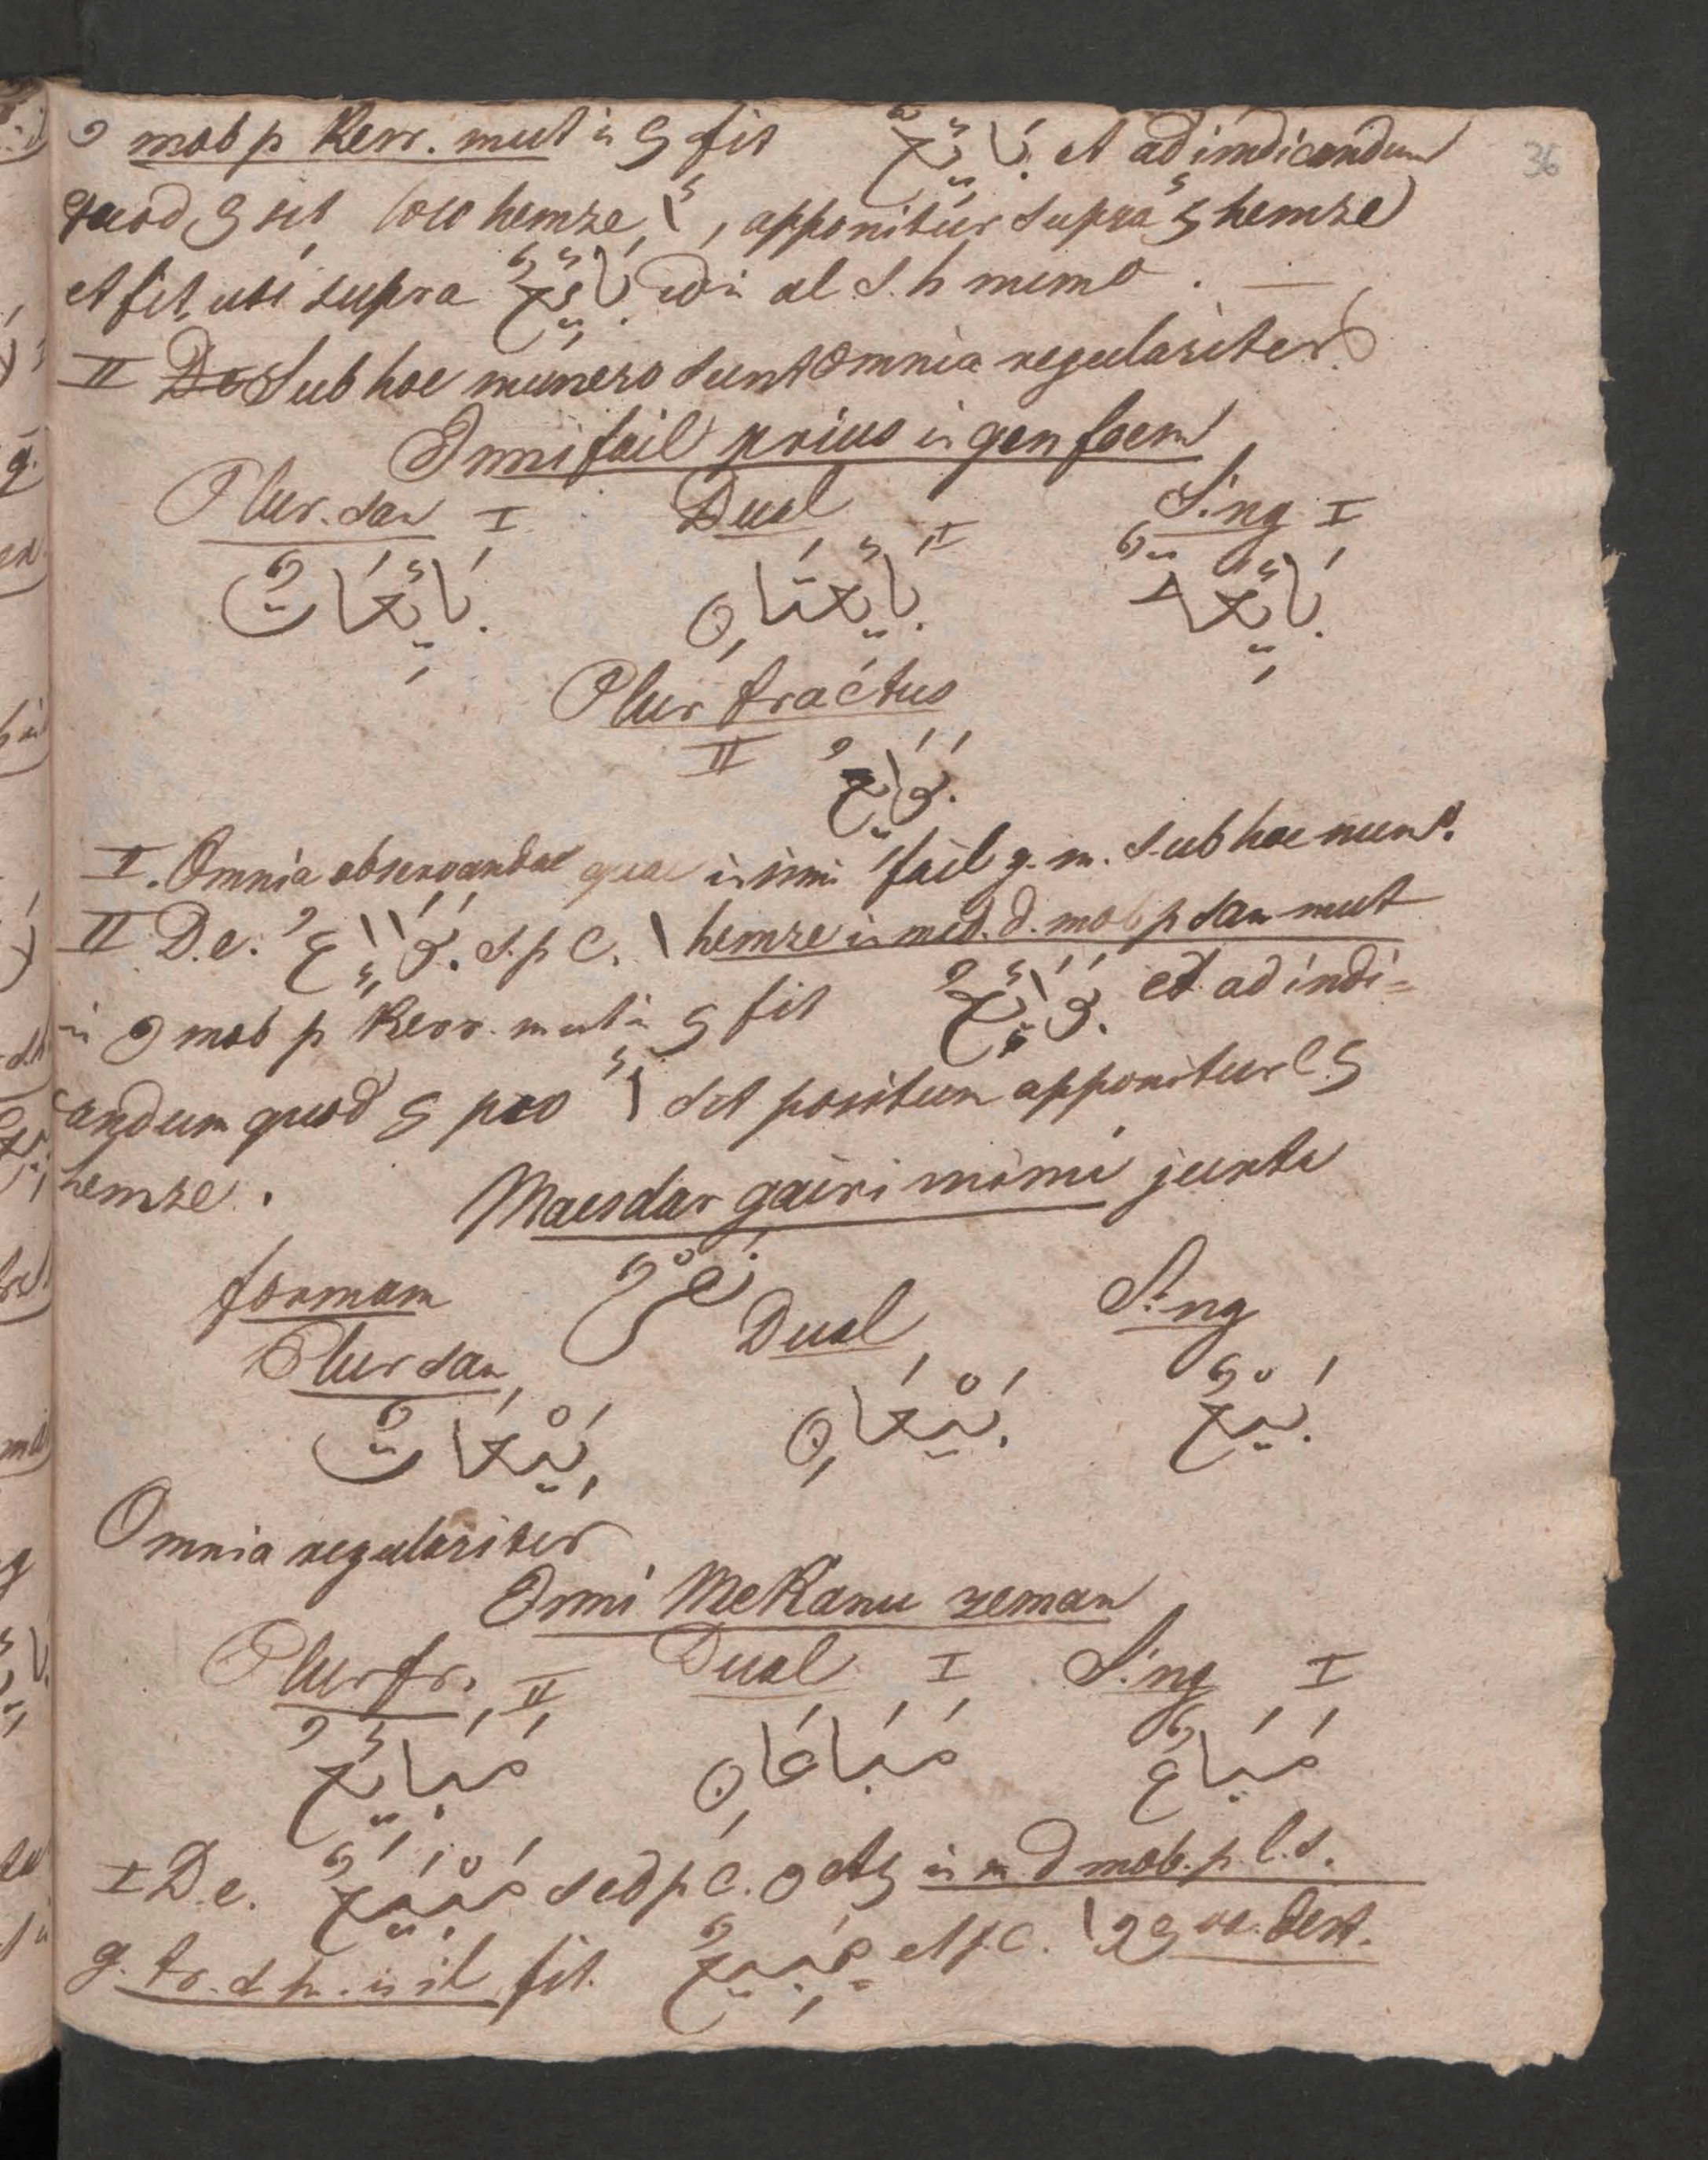 و mob p Kesr. mut in ي fit بَائِعٌ et ad indicandum
quod ي sit loco hemze أ, apponitur supra ي hemze
et fit, uti supra بَائِعٌ in al s. h numo.
II Sub hoc numero sunt omnia regulariter.
Ismi fail prius in gen foem
Plur. san I Dual II Sing I
بَائِعَاتٌ بَائِعَتَانِ بَائِعَةٌ
Plur fractus
II بَوَايِعُ
I. Omnia observanda quae in ismi fail g. m. sub hoc num.
II D.e. بَوَااِعُ s. p C. ا hemze in med. d. mob p san mut
in و mob p Kesr. mut in ي fit بَوَائِعُ et ad indi=
candum quod ي pro أ sit positum apponitur ي
hemze.
Maesdar gairi mimi juxta
formam نَصْرٌ
Plur san Dual Sing
بَيْعَاتٌ بَيْعَانِ بَيْعٌ
Omnia regulariter
Ismi Mekanu zeman
Plur fr. II Dual I Sing I
مَبَائِعُ مَبَاعَانِ مَبَاعٌ
I D.e. مَبْيَعٌ sed p C. و et ي in m d mob. p l. s.
g. tr. d h. in il fit. et p. C.
36